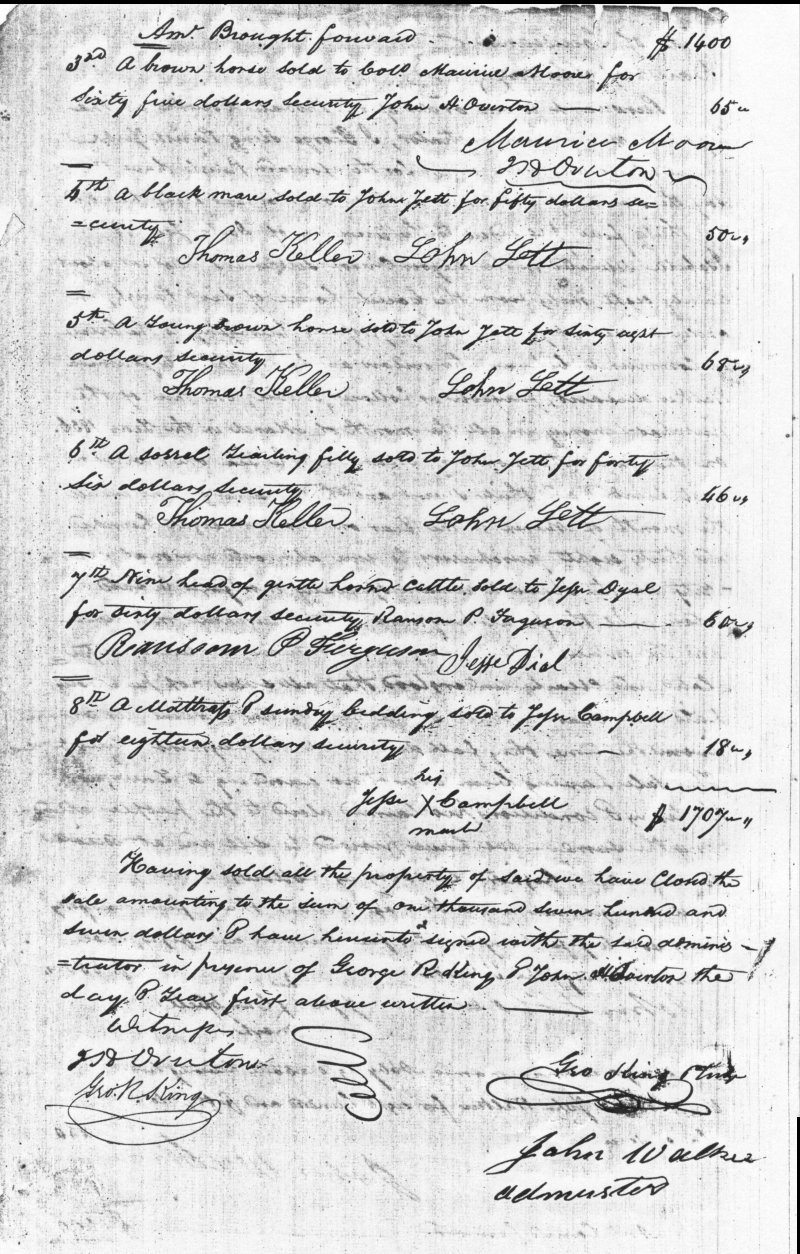 Amt Brought forward $ 1400
3rd A brown horse sold to Colo Maurice Moore for
sixty five dollars security John H Overton — 65 "
Maurice Moore
JH Overton
4th A black mare sold to John Jett for fifty dollars se=
=curity 50 " "
Thomas Keller John Jett
5th A Young brown horse sold to John Jett for sixty eight
dollars security 68 " "
Thomas Keller John Jett
6th A sorrel Yearling filly sold to John Jett for forty
six dollars security 46 " "
Thomas Keller John Jett
7th Nine head of gentle horned cattle sold to Jesse Dyal
for sixty dollars security Ransom P. Faguson — 60 " "
Ranssom P Ferguson Jesse Dial
8th A Mattrass & sunday bedding sold to Jesse Campbell
for eighteen dollars security — 18 " "
his
Jesse X Campbell $ 1707 " "
mark
Having sold all the property of said we have Closed the
sale amounting to the sum of one thousand seven hundred and
seven dollars & have hereunto signed with the said adminis-
=trator in presence of George R King & John H Overton the
day & Year first above written. —
Witness
JH Overton
Geo. R. King
Geo King
John Walker
admnster